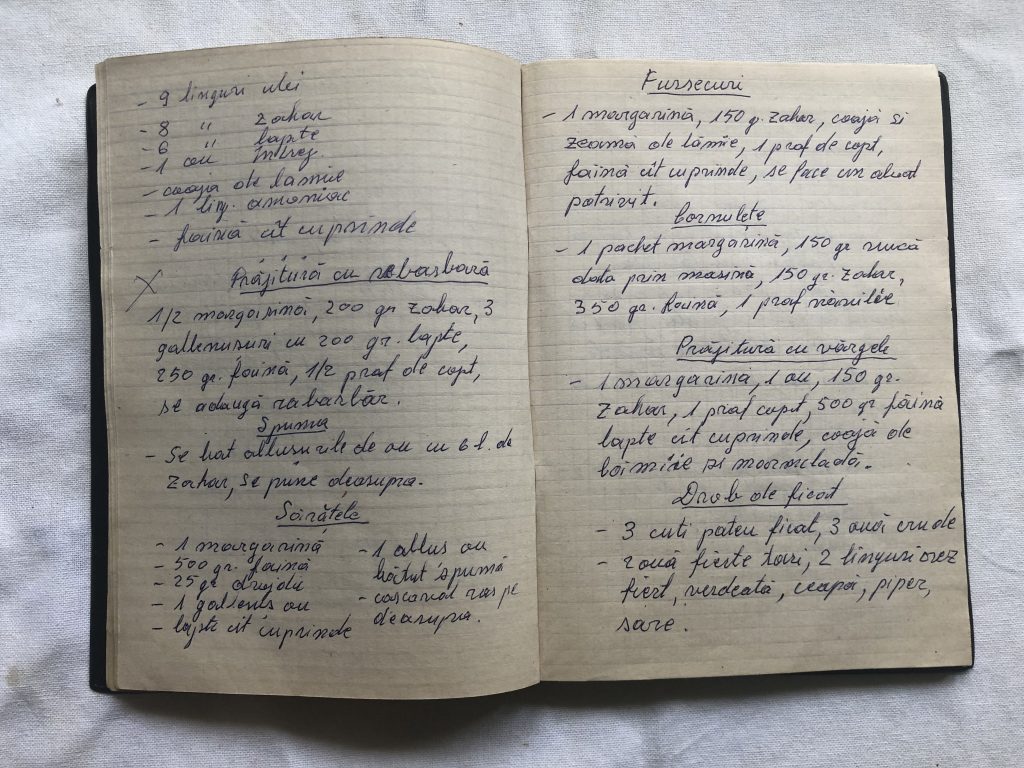 - 9 linguri ulei
- 8 " zahar
- 6 " lapte
- 1 ou întreg
- coaja de lămîie
- 1 ling. amoniac
- făină cît cuprinde
X Prăjitură cu rebarbară
1/2 margarină, 200 gr zahar, 3
galbenusuri cu 200 gr. lapte,
250 gr. făină, 1/2 praf de copt,
se adaugă rabarbăr.
Spuma
- Se bat albusurile de ou cu 6 l. de
zahar, se pune deasupra.
Sărățele
- 1 margarină
- 500 gr. făină
- 25 gr drojdii
- 1 galbenus ou
- lapte cît cuprinde
- 1 albus ou
bătut spumă
- cascaval ras pe
deasupra.
Fursecuri
- 1 margarină, 150 gr. zahar, coajă si
zeamă de lămîie, 1 praf de copt,
făină cît cuprinde, se face un aluat
potrivit.
Cornulețe
- 1 pachet margarină, 150 gr nucă
data prin masină, 150 gr. zahar,
350 gr. făină, 1 praf vanilie
Prăjitură cu vărgele
- 1 margarină, 1 ou, 150 gr.
zahar, 1 praf copt, 500 gr făină
lapte cît cuprinde, coajă de
lămîie si marmeladă.
Drob de ficat
- 3 cuti pateu ficat, 3 ouă crude
- 2 ouă fierte tari, 2 linguri orez
fiert, verdeată, ceapă, piper,
sare.